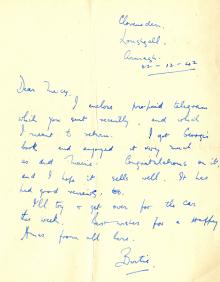 Clovenden,
Loughgall,
Armagh.
22-12-42
Dear
I enclose prepaid telegram
which you sent recently, and which
I meant to return. I got George's
book and enjoyed it very much
as did Mavis. Congratulations on it,
and I hope it sells well. It has
had good reviews,
I'll try & get over for the car
this week. Best wishes for a Happy
Xmas from all here.
Bertie